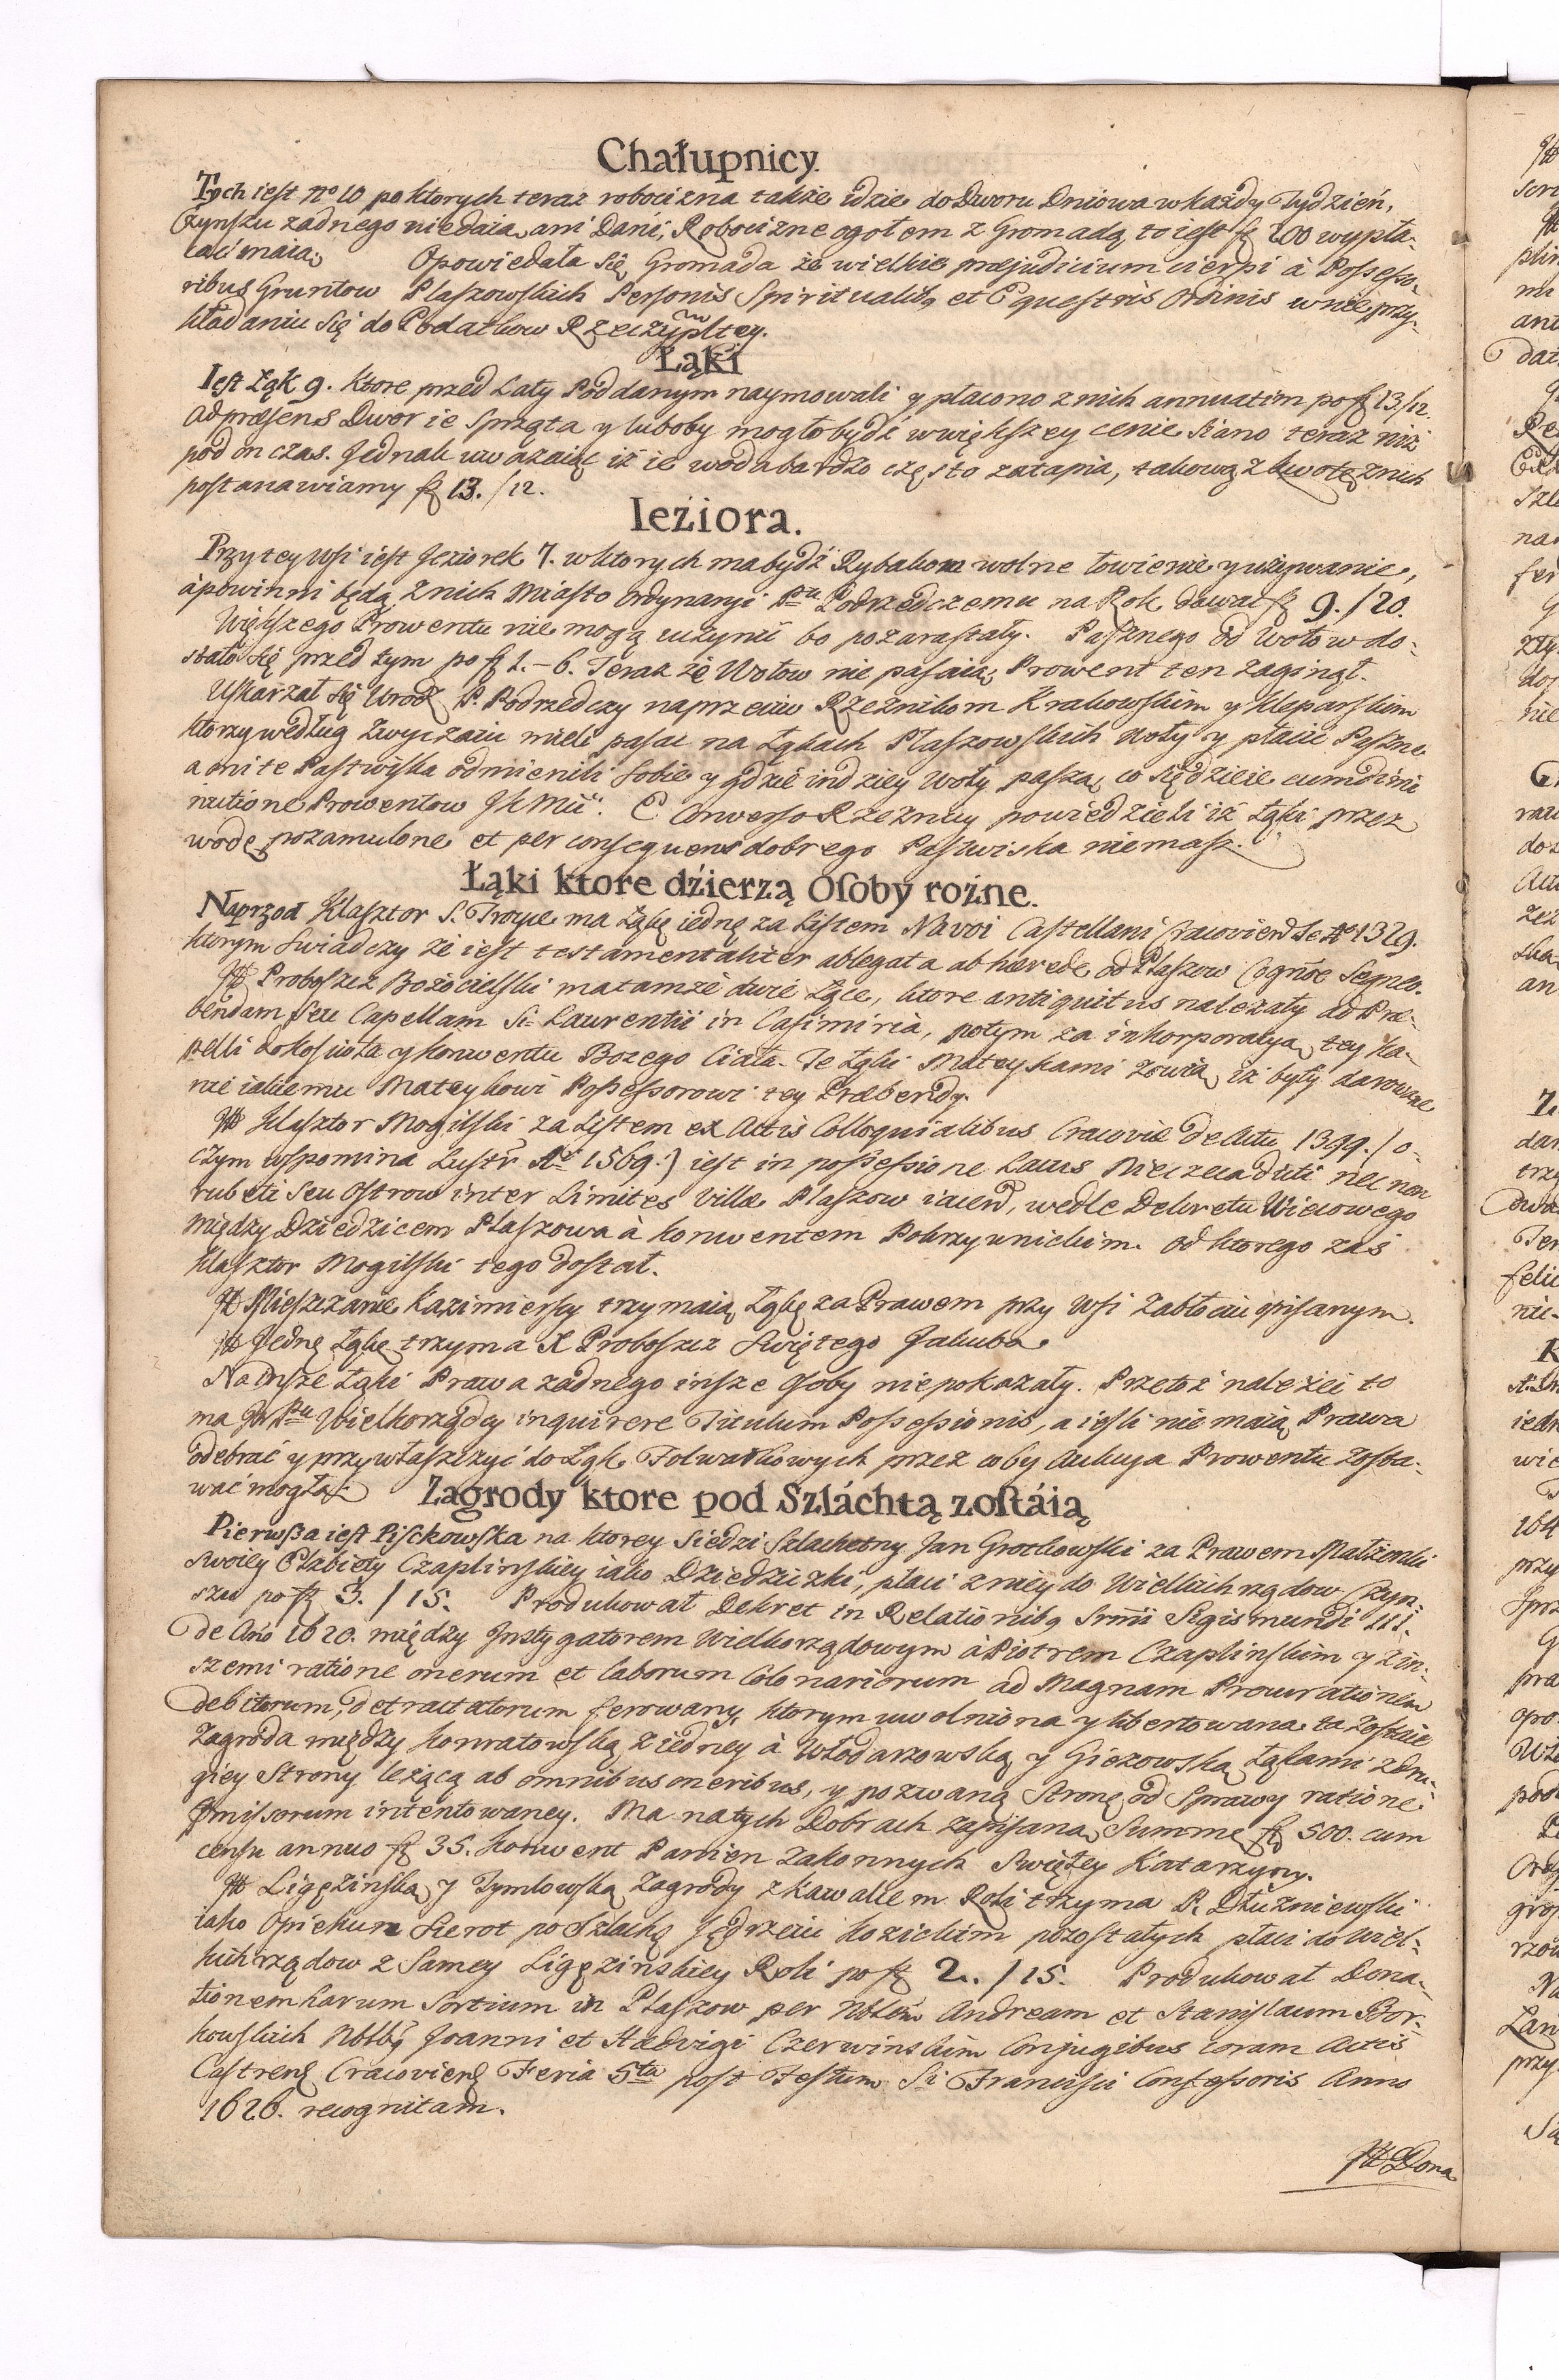 Chałupnicy.
Tych iest no 10 po ktorych teraz robocizna także idzie do Dworu Dniowa w każdy Tydzień,
Czynszu żadnego niedaią, ani Dani, Robocizne ogołem z Gromadą, to iest fl 200 wypła-
cać maią. Opowiedała się Gromada że wielkie præjudicium cierpi à Possesso-
ribus Gruntow Płaszowskich Personis Spiritualibꝫ et Equestris Ordinis w nie przy-
kładaniu się do Podatkow Rzeczypltey.
Łąki
Iest Łąk 9. ktore przed Laty Poddanym naymowali y płacono z nich annuatim po fl 13./12.
Ad præsens Dwor ie Sprząta y luboby mogło bydź w większey cenie Siano teraz niż
pod on czas. Jednak uważaiąc iż ie woda bardzo często zatapia, takową kwotę z nich
postanawiamy fl 13./12.
Ieźiora.
Przy tey Wsi iest Jeziorek 7. w ktorych ma bydź Rybakom wolne łowienie y używanie,
à powinni będą z nich Miasto Ordynaryi Pu Podrzędczemu na Rok dawać fl 9./20.
Większego Prowentu nie mogą uczynić bo pozarastały. Pasznego od Wołow do-
stało się przed tym po fl 1.-6. Teraz że Wołow nie pasaią, Prowent ten zaginął.
Uskarżał się Urodz P. Podrzędczy naprzeciw Rzeznikom Krakowskim y Kleparskim
ktorzy według Zwyczaiu mieli pasać na Łąkach Płaszowskich Woły y płacić Paszne
a oni te Pastwiska odmienili sobie y gdzie indziey Woły paszą, co się dzieie cum dimi
nutione Prowentow JKMci. E Converso Rzeznicy powiedzieli iż Łąki przez
wodę pozamulone et per consequens dobrego Pastwiska niemasz.
Łąki ktore dźierzą Osoby rożne.
Naprzod Klasztor S. Troyce ma Łąkę iednę za Listem Navoi Castellani Cracovien de Ao 1329.
ktorym świadczy że iest testamentaliter ablegata ab hærede od Płaszow Cognoe Segneo.
It Proboszcz Bożocielski ma tamże dwie Łące, ktore antiquitus należały ad Præ-
bendam seu Capellam Sti Laurentii in Casimiria, potym za inkorporacyą tey Ka-
pelli do Kościoła y Konwentu Bożego Ciała. Te Łąki Mateykami zowią, iż były darowane
nieiakiemu Mateykowi Possessorowi tey Præbendy.
It Klysztor Mogilski za Listem ex Actis Colloquialibus Cracoviæ de Actu 1399. /o-
czym wspomina Lustr Ao 1569.) iest in possessione Lacus Mieczca dicti nec non
rubeti seu Ostrow inter Limites Villæ Płaszow iacen, wedle Dekretu Wiecowego
między Dziedzicem Płaszowa à Konwentem Pokrzywnickim. Od ktorego zaś
Klasztor Mogilski tego dostał.
It Mieszczanie Kazimierscy trzymaią Łąkę za Prawem przy Wsi Zabłociu opisanym.
It Jednę Łąkę trzyma X Proboszcz Świętego Jakuba.
Na insze Łąki Prawa żadnego insze Osoby nie pokazały. Przetoż należeć to
ma Pu Wielkorządcy inquirere Titulum Possessionis, a iesli nie maią Prawa
odebrać y przywłaszczyć do Łąk Folwarkowych przez coby Aukcya Prowentu zosta-
wać mogła.
Zagrody ktore pod Szláchtą zostáią
Pierwsza iest Pisckowska na ktorey Siedzi Szlachetny Jan Grotkowski za Prawem Małżonki
Swoiey Elżbiety Czaplinskiey iako Dziedziczki, płaci z niey do Wielkichrządow Czyn-
szu po fl 3./15. Produkował Dekret in Relationibꝫ Srmi Sigismundi III.
de Ano 1620. między Jnstygatorem Wielkorządowym à Piotrem Czaplinskim y z in-
szemi ratione onerum et laborum Colonariorum ad Magnam Procurationem
debitorum, detractatorum ferowany, ktorym uwolniona y libertowana ta zostaie
Zagroda między Konratowską z iedney à Włodarzowską y Giezowską Łąkami z dru-
giey Strony leżącą ab omnibus oneribus, y pozwaną Stronę od Sprawy ratione
pmissorum intentowaney. Ma na tych Dobrach zapisaną Summę fl 500. cum
censu annuo fl 35. Konwent Panien Zakonnych Świętey Katarzyny.
It Ligęzińską y Tymlowską Zagrody z kawałem Roli trzyma P. Dłużniewski
iako Opiekun Sierot po Szlachę Jędrzeiu Kozickim pozostałych płaci do Wiel-
kichrządow z Samey Ligęzinskiey Roli po fl 2./15. Produkował Dona-
tionem harum Sortium in Płaszow per Nblem Andream et Stanislaum Bor-
kowskich Nblbꝫ Joanni et Hedvigi Czerwinskim Conjugibus coram Actis
Castrens Cracoviens Feria 5ta post Festum Sti Francisci Confessoris Anno
1626. recognitam.
It Dona